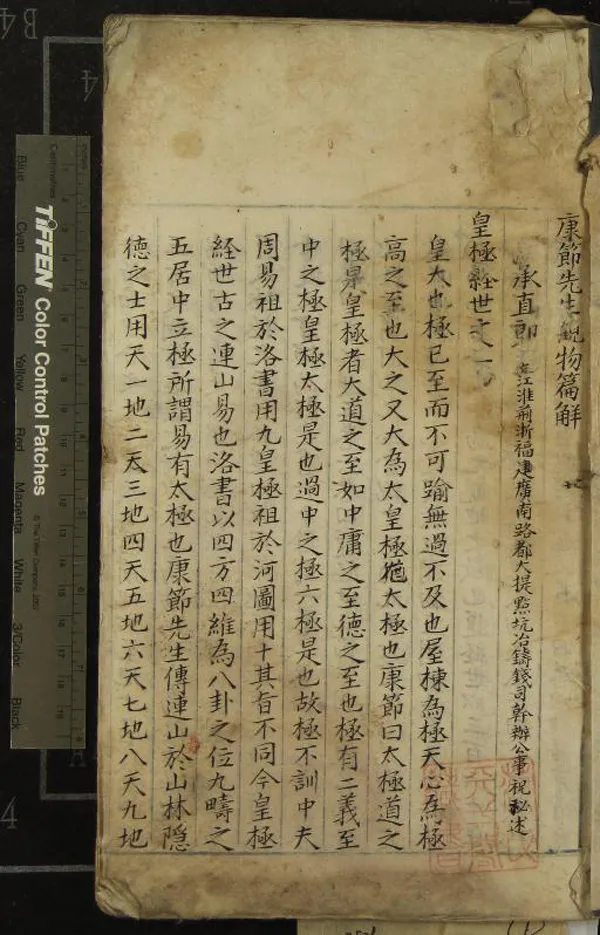 康節先生觀物篇解
承直郎 江淮荊浙福建廣南路都大提點坑冶鑄錢司幹辦公事祝秘述
皇極経世之一
皇大也極已至而不可踰無過不及也屋棟為極天心為極
高之至也大之又大為太皇極猶太極也康節曰太極道之
極是皇極者大道之至如中庸之至德之至也極有二義至
中之極皇極太極是也過中之極六極是也故極不訓中夫
周易祖於洛書用九皇極祖於河圖用十其旨不同今皇極
経世古之連山易也洛書以四方四維為八卦之位九疇之
五居中立極所謂易有太極也康節先生傳連山於山林隱
德之士用天一地二天三地四天五地六天七地八天九地
TIFFEN Color Control Patches
© The Tiffen Company, 2007
Centimetres
Blue
Cyan
Green
Yellow
Red
Magenta
White
3/Color
Black
B4
4